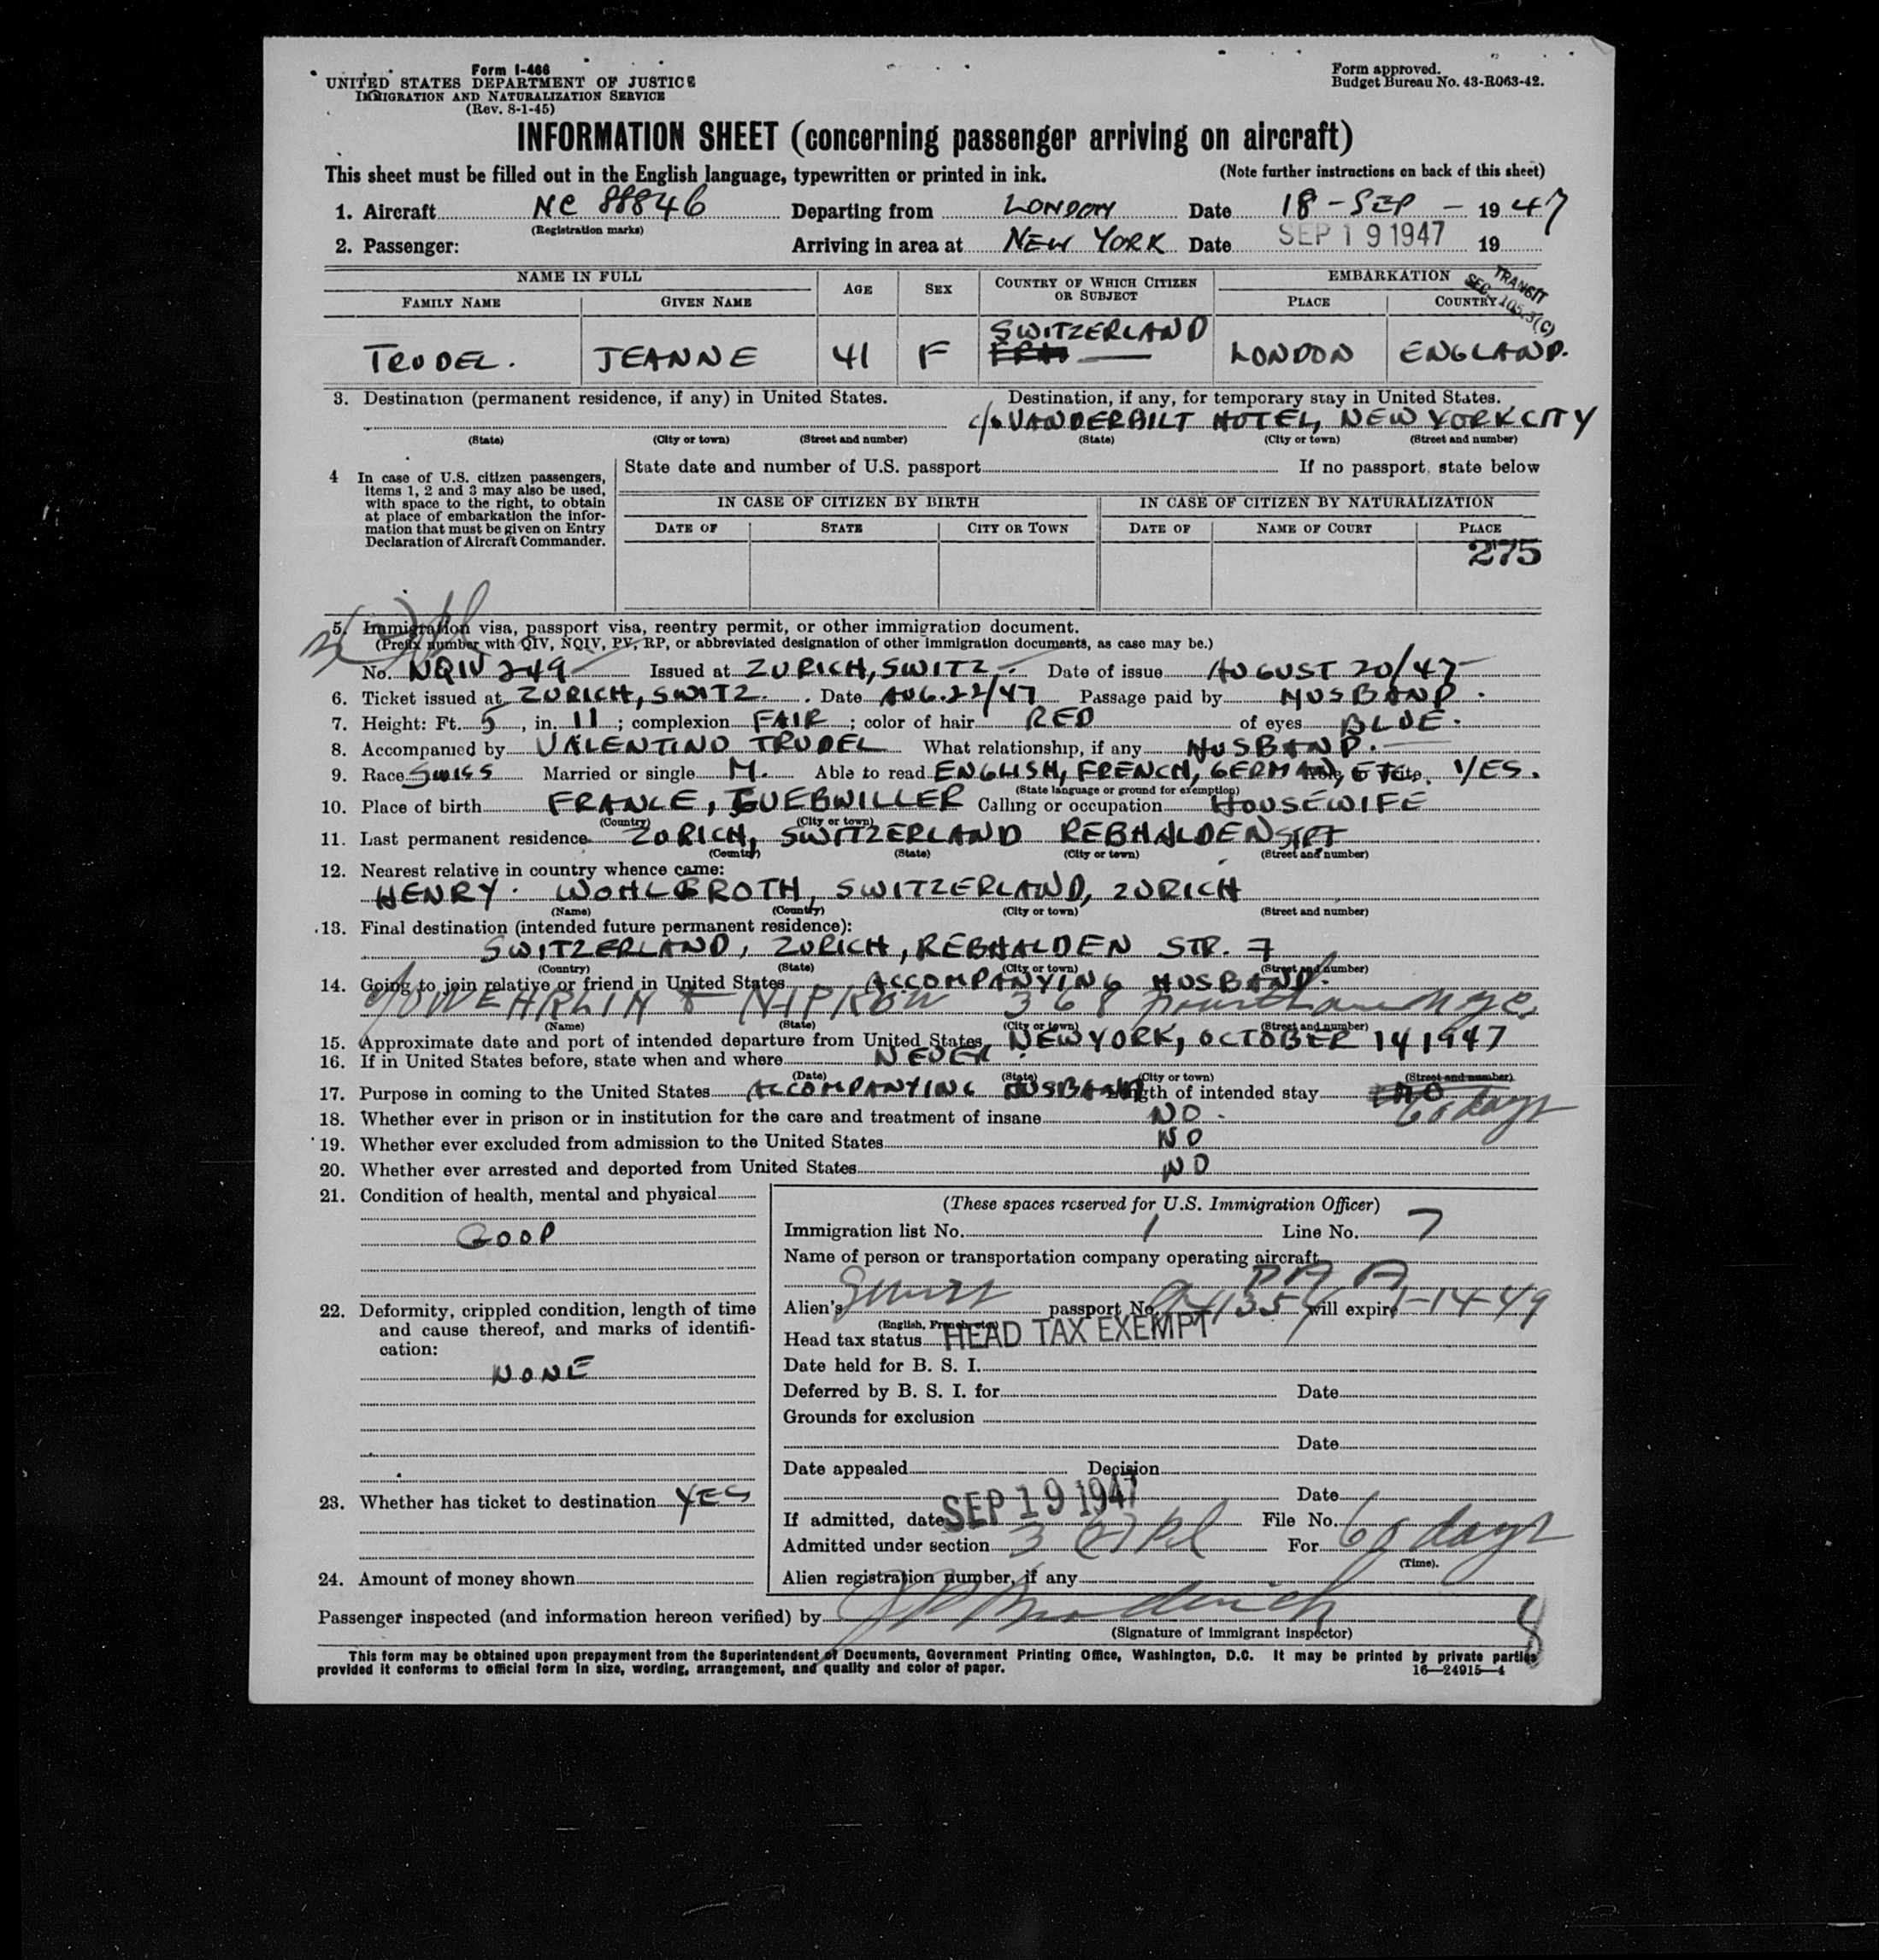 Form I-466
UNITED STATES DEPARTMENT OF JUSTICE
IMMIGRATION AND NATURALIZATION SERVICE
(Rev. 8-1-45)
Form approved.
Budget Bureau No. 43-R063-42.
INFORMATION SHEET (concerning passenger arriving on aircraft)
This sheet must be filled out in the English language, typewritten or printed in ink. (Note further instructions on back of this sheet)
1. Aircraft NC 88846 Departing from LONDON Date 18-SEP- 1947
(Registration marks)
2. Passenger: Arriving in area at NEW YORK Date SEP 19 1947 19
NAME IN FULL AGE SEX COUNTRY OF WHICH CITIZEN OR SUBJECT EMBARKATION
FAMILY NAME GIVEN NAME PLACE COUNTRY
TRANSIT
SEC. 105.3(C)
SWITZERLAND
TRUDEL. JEANNE 41 F LONDON ENGLAND.
3. Destination (permanent residence, if any) in United States. Destination, if any, for temporary stay in United States.
c/o VANDERBILT HOTEL, NEW YORK CITY
(State) (City or town) (Street and number) (State) (City or town) (Street and number)
4 In case of U.S. citizen passengers, items 1, 2 and 3 may also be used, with space to the right, to obtain at place of embarkation the information that must be given on Entry Declaration of Aircraft Commander.
State date and number of U.S. passport If no passport, state below
IN CASE OF CITIZEN BY BIRTH IN CASE OF CITIZEN BY NATURALIZATION
DATE OF STATE CITY OR TOWN DATE OF NAME OF COURT PLACE
275
5. Immigration visa, passport visa, reentry permit, or other immigration document.
(Prefix number with QIV, NQIV, PV, RP, or abbreviated designation of other immigration documents, as case may be.)
No. NQIV 249 Issued at ZURICH, SWITZ. Date of issue AUGUST 20/47
6. Ticket issued at ZURICH, SWITZ. Date AUG. 22/47 Passage paid by HUSBAND.
7. Height: Ft. 5, in. 11; complexion FAIR; color of hair RED of eyes BLUE.
8. Accompanied by VALENTINO TRUDEL What relationship, if any HUSBAND.
9. Race SWISS Married or single M. Able to read ENGLISH, FRENCH, GERMAN, ETC. YES.
(State language or ground for exemption)
10. Place of birth FRANCE, GUEBWILLER Calling or occupation HOUSEWIFE
(Country) (City or town)
11. Last permanent residence ZURICH, SWITZERLAND REBHALDENSTR 7
(Country) (State) (City or town) (Street and number)
12. Nearest relative in country whence came:
HENRY WOHLGROTH, SWITZERLAND, ZURICH
(Name) (Country) (City or town) (Street and number)
13. Final destination (intended future permanent residence):
SWITZERLAND, ZURICH, REBHALDEN STR. 7
(Country) (State) (City or town) (Street and number)
14. Going to join relative or friend in United States ACCOMPANYING HUSBAND.
WEHRLIN & NIPKOW 368 Fourth ave NYC.
(Name) (State) (City or town) (Street and number)
15. Approximate date and port of intended departure from United States NEW YORK, OCTOBER 14 1947
16. If in United States before, state when and where NEVER.
(Date) (State) (City or town) (Street and number)
17. Purpose in coming to the United States ACCOMPANYING HUSBAND Length of intended stay 60 days
18. Whether ever in prison or in institution for the care and treatment of insane NO.
19. Whether ever excluded from admission to the United States NO
20. Whether ever arrested and deported from United States NO
21. Condition of health, mental and physical
GOOD
22. Deformity, crippled condition, length of time and cause thereof, and marks of identification:
NONE
23. Whether has ticket to destination YES
24. Amount of money shown
(These spaces reserved for U.S. Immigration Officer)
Immigration list No. 1 Line No. 7
Name of person or transportation company operating aircraft
PAA
Alien's Swiss passport No. will expire 1-14-49
(English, French, etc.)
Head tax status HEAD TAX EXEMPT
Date held for B. S. I.
Deferred by B. S. I. for Date
Grounds for exclusion
Date
Date appealed Decision
Date
If admitted, date SEP 19 1947 File No.
Admitted under section 3 (2) For 60 days
(Time).
Alien registration number, if any
Passenger inspected (and information hereon verified) by
(Signature of immigrant inspector)
8
This form may be obtained upon prepayment from the Superintendent of Documents, Government Printing Office, Washington, D.C. It may be printed by private parties
provided it conforms to official form in size, wording, arrangement, and quality and color of paper. 16—24915-4